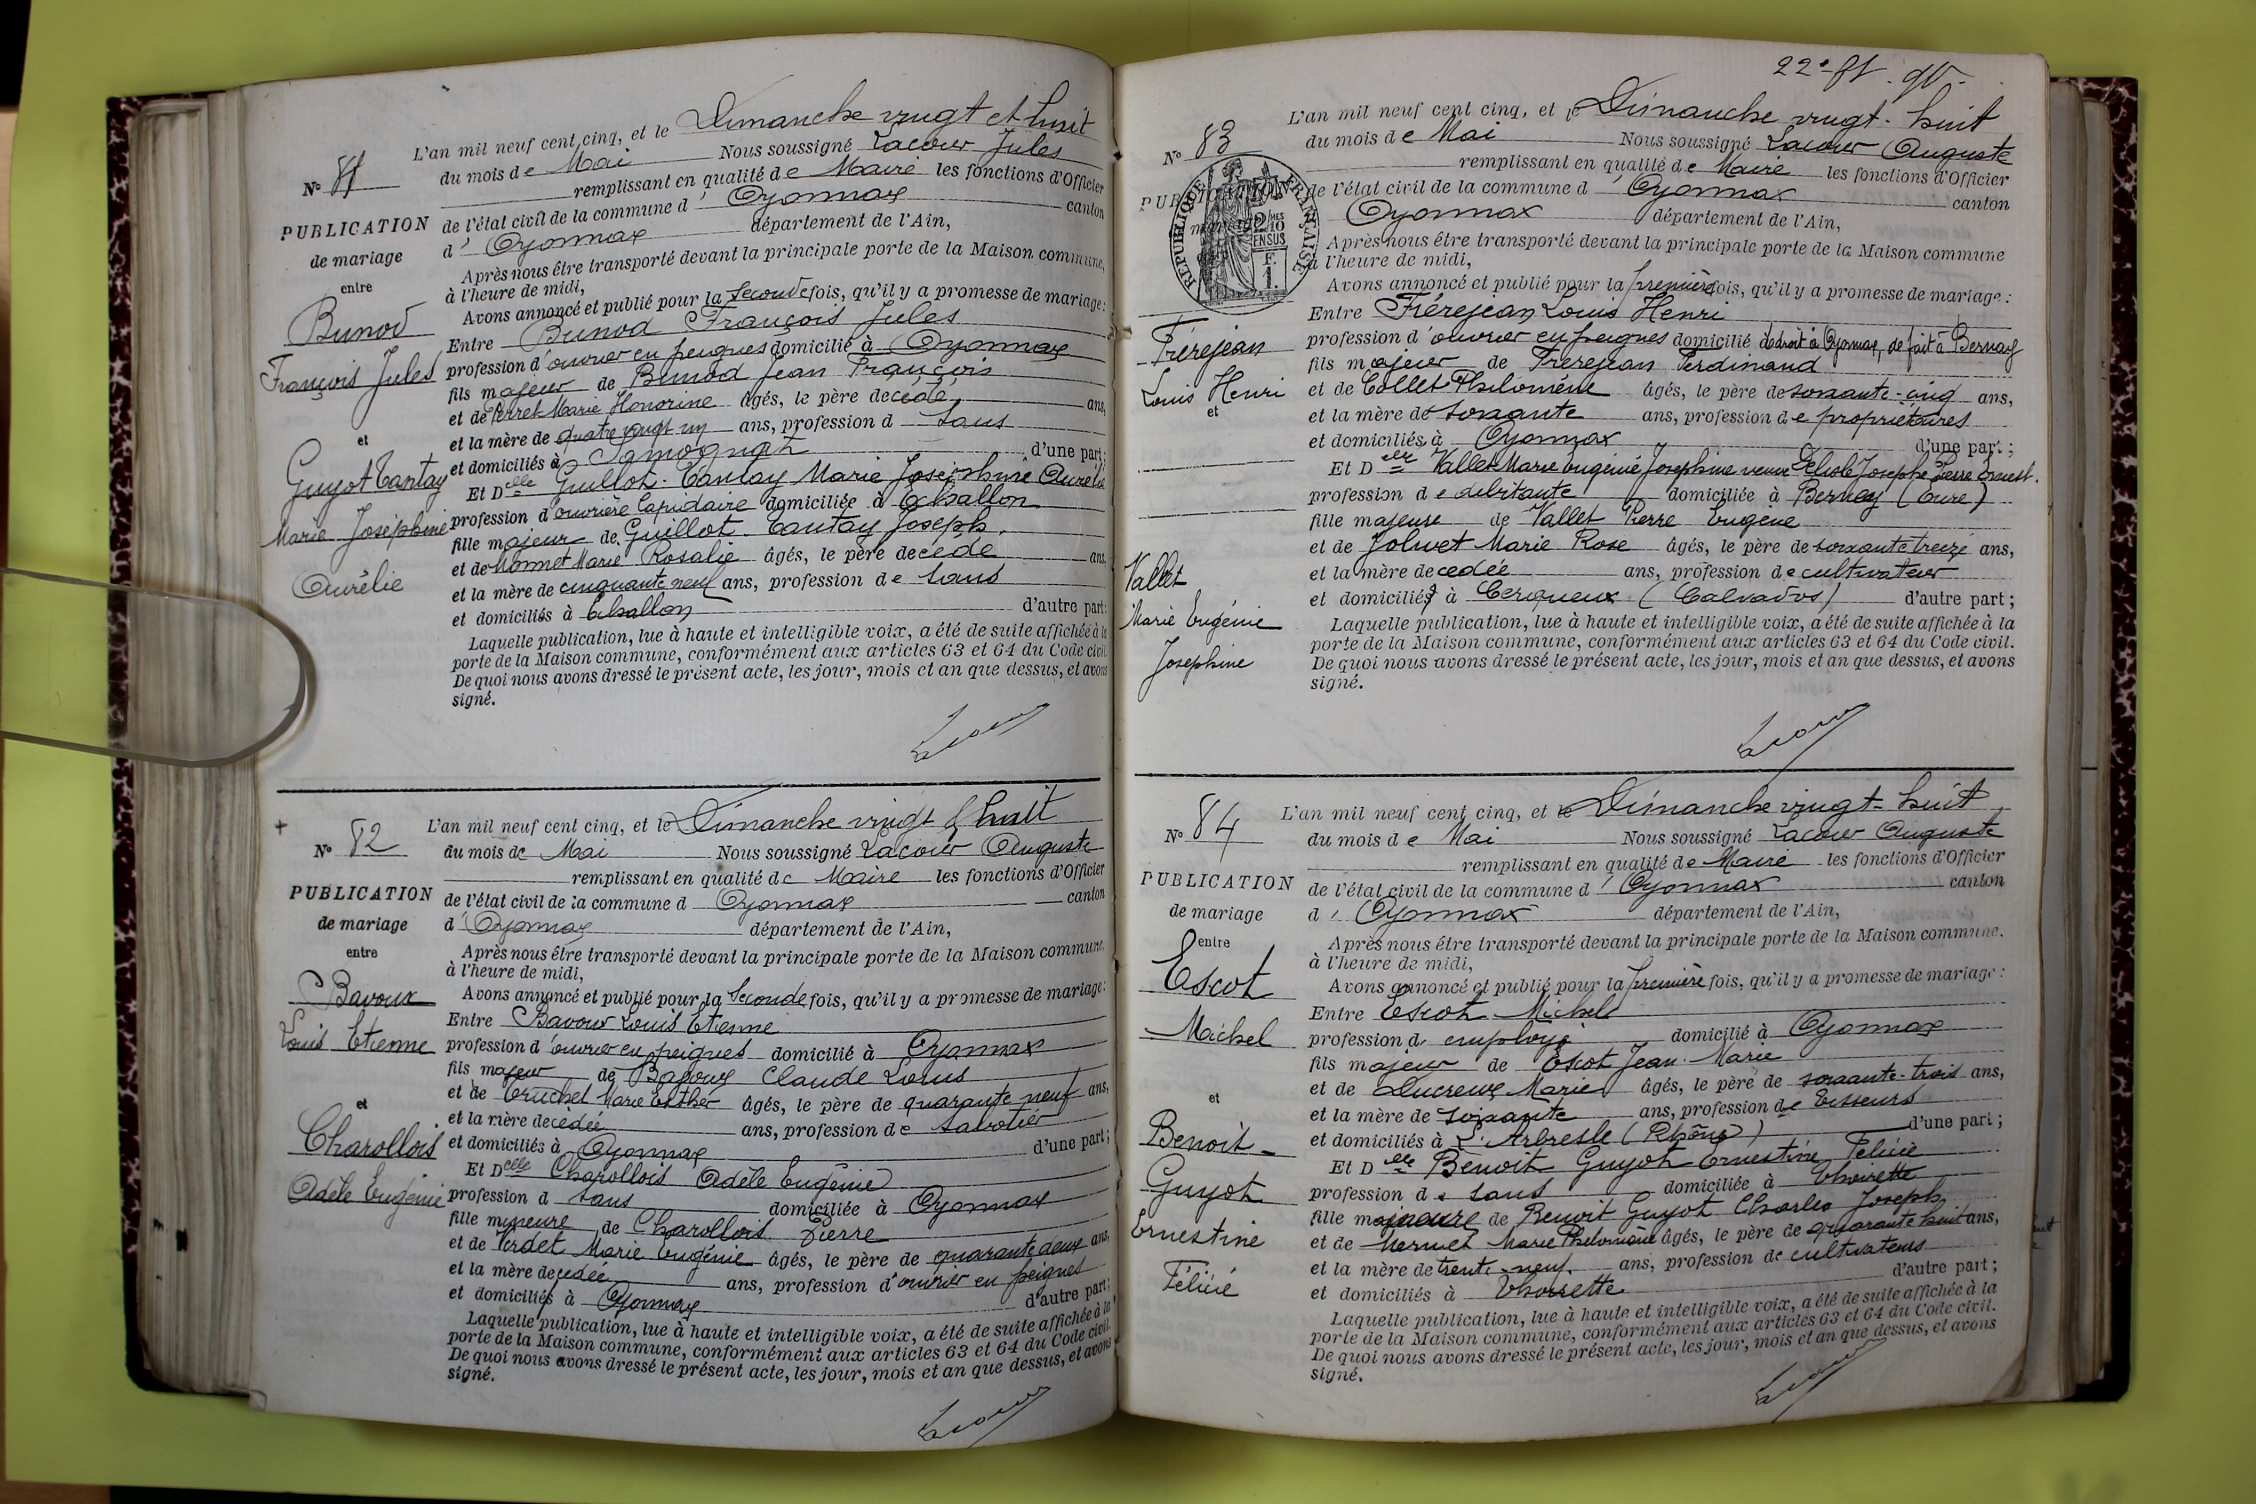 L'an mil neuf cent cinq, et le Dimanche vingt et huit
N° 81
du mois de Mai Nous soussigné Lacour Jules
remplissant en qualité de Maire les fonctions d'Officier
PUBLICATION
de l'état civil de la commune d' Oyonnax canton
de mariage
d' Oyonnax département de l'Ain,
entre
Après nous être transporté devant la principale porte de la Maison commune,
à l'heure de midi,
Avons annoncé et publié pour la Seconde fois, qu'il y a promesse de mariage:
Bunod
Entre Bunod François Jules
François Jules
profession d'ouvrier en peignes domicilié à Oyonnax
fils majeur de Bunod Jean François
et de Perret Marie Honorine âgés, le père décédé ans,
et
et la mère de quatre vingt un ans, profession d sans
et domiciliés à Samognat d'une part;
Guyot Tantay
Et Delle Guillot-Tantay Marie Joséphine Aurélie
Marie Joséphine
profession d'ouvrière lapidaire domiciliée à Echallon
Aurélie
fille majeur de Guillot-Tantay Joseph
et de Monnet Marie Rosalie âgés, le père decédé ans,
et la mère de cinquante neuf ans, profession de sans
et domiciliés à Echallon d'autre part:
Laquelle publication, lue à haute et intelligible voix, a été de suite affichée à la
porte de la Maison commune, conformément aux articles 63 et 64 du Code civil.
De quoi nous avons dressé le présent acte, les jour, mois et an que dessus, et avons
signé.
Lacour
L'an mil neuf cent cinq, et le Dimanche vingt & huit
N° 82
du mois de Mai Nous soussigné Lacour Auguste
remplissant en qualité de Maire les fonctions d'Officier
PUBLICATION
de l'état civil de la commune d Oyonnax canton
de mariage
d' Oyonnax département de l'Ain,
entre
Après nous être transporté devant la principale porte de la Maison commune,
à l'heure de midi,
Avons annoncé et publié pour la Seconde fois, qu'il y a promesse de mariage:
Bavoux
Entre Bavoux Louis Etienne
Louis Etienne
profession d'ouvrier en peignes domicilié à Oyonnax
fils majeur de Bavoux Claude Louis
et de Truchet Marie Esther âgés, le père de quarante neuf ans,
et
et la mère decédée ans, profession de sabotier
Charollois
et domiciliés à Oyonnax d'une part;
Et Delle Charollois Adèle Eugénie
Adèle Eugénie
profession d sans domiciliée à Oyonnax
fille mineure de Charollois Pierre
et de Verdet Marie Eugénie âgés, le père de quarante deux ans,
et la mère decédée ans, profession d'ouvrier en peignes
et domiciliés à Oyonnax d'autre part:
Laquelle publication, lue à haute et intelligible voix, a été de suite affichée à la
porte de la Maison commune, conformément aux articles 63 et 64 du Code civil.
De quoi nous avons dressé le présent acte, les jour, mois et an que dessus, et avons
signé.
Lacour
L'an mil neuf cent cinq, et le Dimanche vingt-huit
N° 83
du mois de Mai Nous soussigné Lacour Auguste
remplissant en qualité de Maire les fonctions d'Officier
PUBLICATION
RÉPUBLIQUE FRANÇAISE
2/10 EN SUS
1 F.
de l'état civil de la commune d' Oyonnax canton
Oyonnax département de l'Ain,
Après nous être transporté devant la principale porte de la Maison commune
à l'heure de midi,
Avons annoncé et publié pour la première fois, qu'il y a promesse de mariage:
Frérejean
Entre Frérejean Louis Henri
Louis Henri
profession d'ouvrier en peignes domicilié de droit à Oyonnax, de fait à Bernay
fils majeur de Frérejean Ferdinand
et
et de Collet Philomène âgés, le père de soixante-cinq ans,
et la mère de soixante ans, profession de propriétaires
et domiciliés à Oyonnax d'une part;
Et Delle Vallet Marie Eugénie Josephine veuve Delisle Joseph Pierre Ernest.
profession de débitante domiciliée à Bernay (Eure)
fille majeure de Vallet Pierre Eugène
Vallet
et de Jolivet Marie Rose âgés, le père de soixante treize ans,
et la mère decédée ans, profession de cultivateur
Marie Eugénie
et domiciliés à Cerqueux (Calvados) d'autre part;
Josephine
Laquelle publication, lue à haute et intelligible voix, a été de suite affichée à la
porte de la Maison commune, conformément aux articles 63 et 64 du Code civil.
De quoi nous avons dressé le présent acte, les jour, mois et an que dessus, et avons
signé.
Lacour
L'an mil neuf cent cinq, et le Dimanche vingt-huit
N° 84
du mois de Mai Nous soussigné Lacour Auguste
remplissant en qualité de Maire les fonctions d'Officier
PUBLICATION
de l'état civil de la commune d' Oyonnax canton
de mariage
d' Oyonnax département de l'Ain,
entre
Après nous être transporté devant la principale porte de la Maison commune,
à l'heure de midi,
Avons annoncé et publié pour la première fois, qu'il y a promesse de mariage:
Escot
Entre Escot Michel
Michel
profession d employé domicilié à Oyonnax
fils majeur de Escot Jean-Marie
et de Ducreux Marie âgés, le père de soixante-trois ans,
et
et la mère de soixante ans, profession de tisseurs
Benoit-
et domiciliés à L'Arbresle (Rhône) d'une part;
Guyot
Et Delle Benoit Guyot Ernestine Félicie
Ernestine
profession de sans domiciliée à Thoirette
Félicie
fille mineure de Benoit Guyot Charles Joseph
et de Mermet Marie Philomène âgés, le père de quarante huit ans,
et la mère de trente-neuf ans, profession de cultivateurs
et domiciliés à Thoirette d'autre part;
Laquelle publication, lue à haute et intelligible voix, a été de suite affichée à la
porte de la Maison commune, conformément aux articles 63 et 64 du Code civil.
De quoi nous avons dressé le présent acte, les jour, mois et an que dessus, et avons
signé.
Lacour